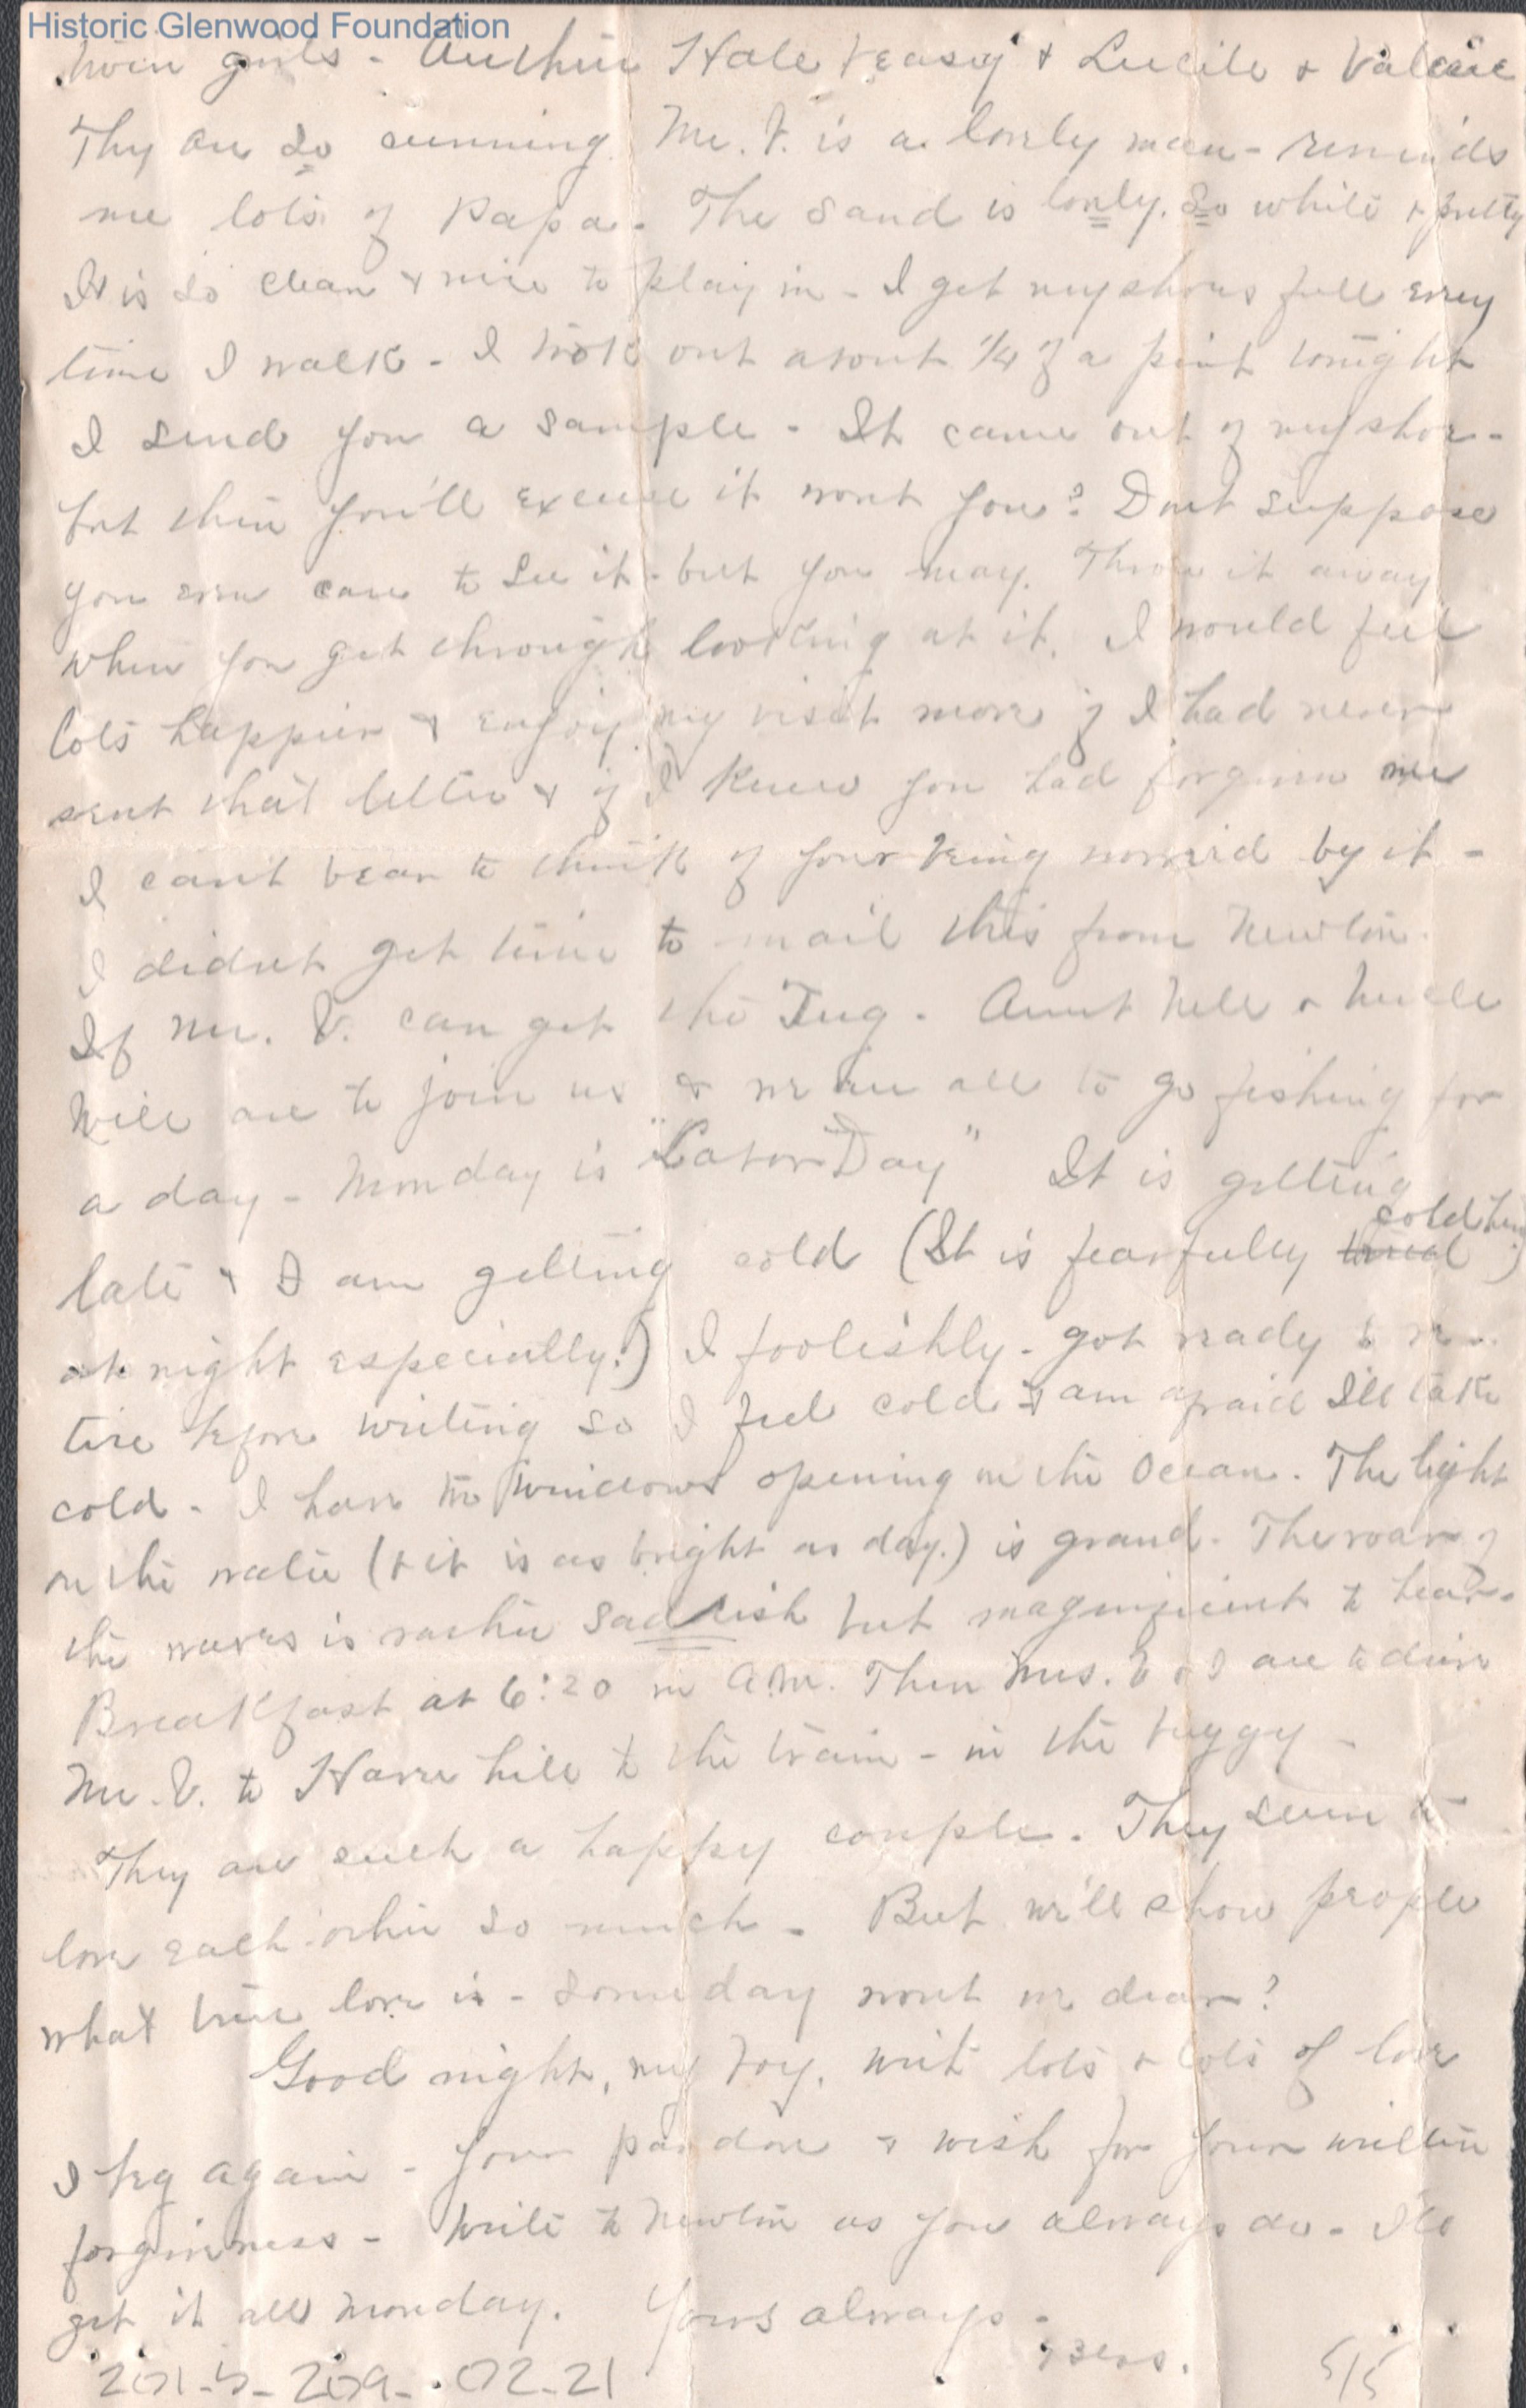 Historic Glenwood Foundation
twin girls - Arthur Hale Veasey & Lucile & Valerie
They are so cunning. Mr. V. is a lovely man - reminds
me lots of Papa. The sand is lovely. So white & pretty
It is so clean & nice to play in - I get my shoes full every
time I walk - I took out about 1/4 of a pint tonight
I send you a sample - It came out of my shoe -
but then you'll excuse it wont you? Dont suppose
you even care to see it - but you may. Throw it away
when you get through looking at it. I would feel
lots happier & enjoy my visit more if I had never
sent that letter & if I knew you had forgiven me
I can't bear to think of your being worried by it -
I didn't get time to mail this from Newton.
If Mr. V. can get the Tug - Aunt Nell & Uncle
Will are to join us & we are all to go fishing for
a day - Monday is "Labor Day" It is getting
late & I am getting cold (It is fearfully cold here
at night especially!) I foolishly - got ready to re-
tire before writing so I feel cold & am afraid I'll take
cold - I have two windows opening on the Ocean. The light
on the water (& it is as bright as day.) is grand - The roar of
the waves is rather sadish but magnificent to hear.
Breakfast at 6:20 in A.M. Then Mrs. V & I are to drive
Mr. V. to Haverhill to the train - in the buggy -
They are such a happy couple. They seem to
love each other so much - But we'll show people
what true love is - someday wont we dear?
Good night, my boy, with lots & lots of love
I beg again - your pardon & wish for your written
forgiveness - Write to Newton as you always do - I'll
get it all Monday. Yours always -
Bess.
201-5-209-.02-21
5/5